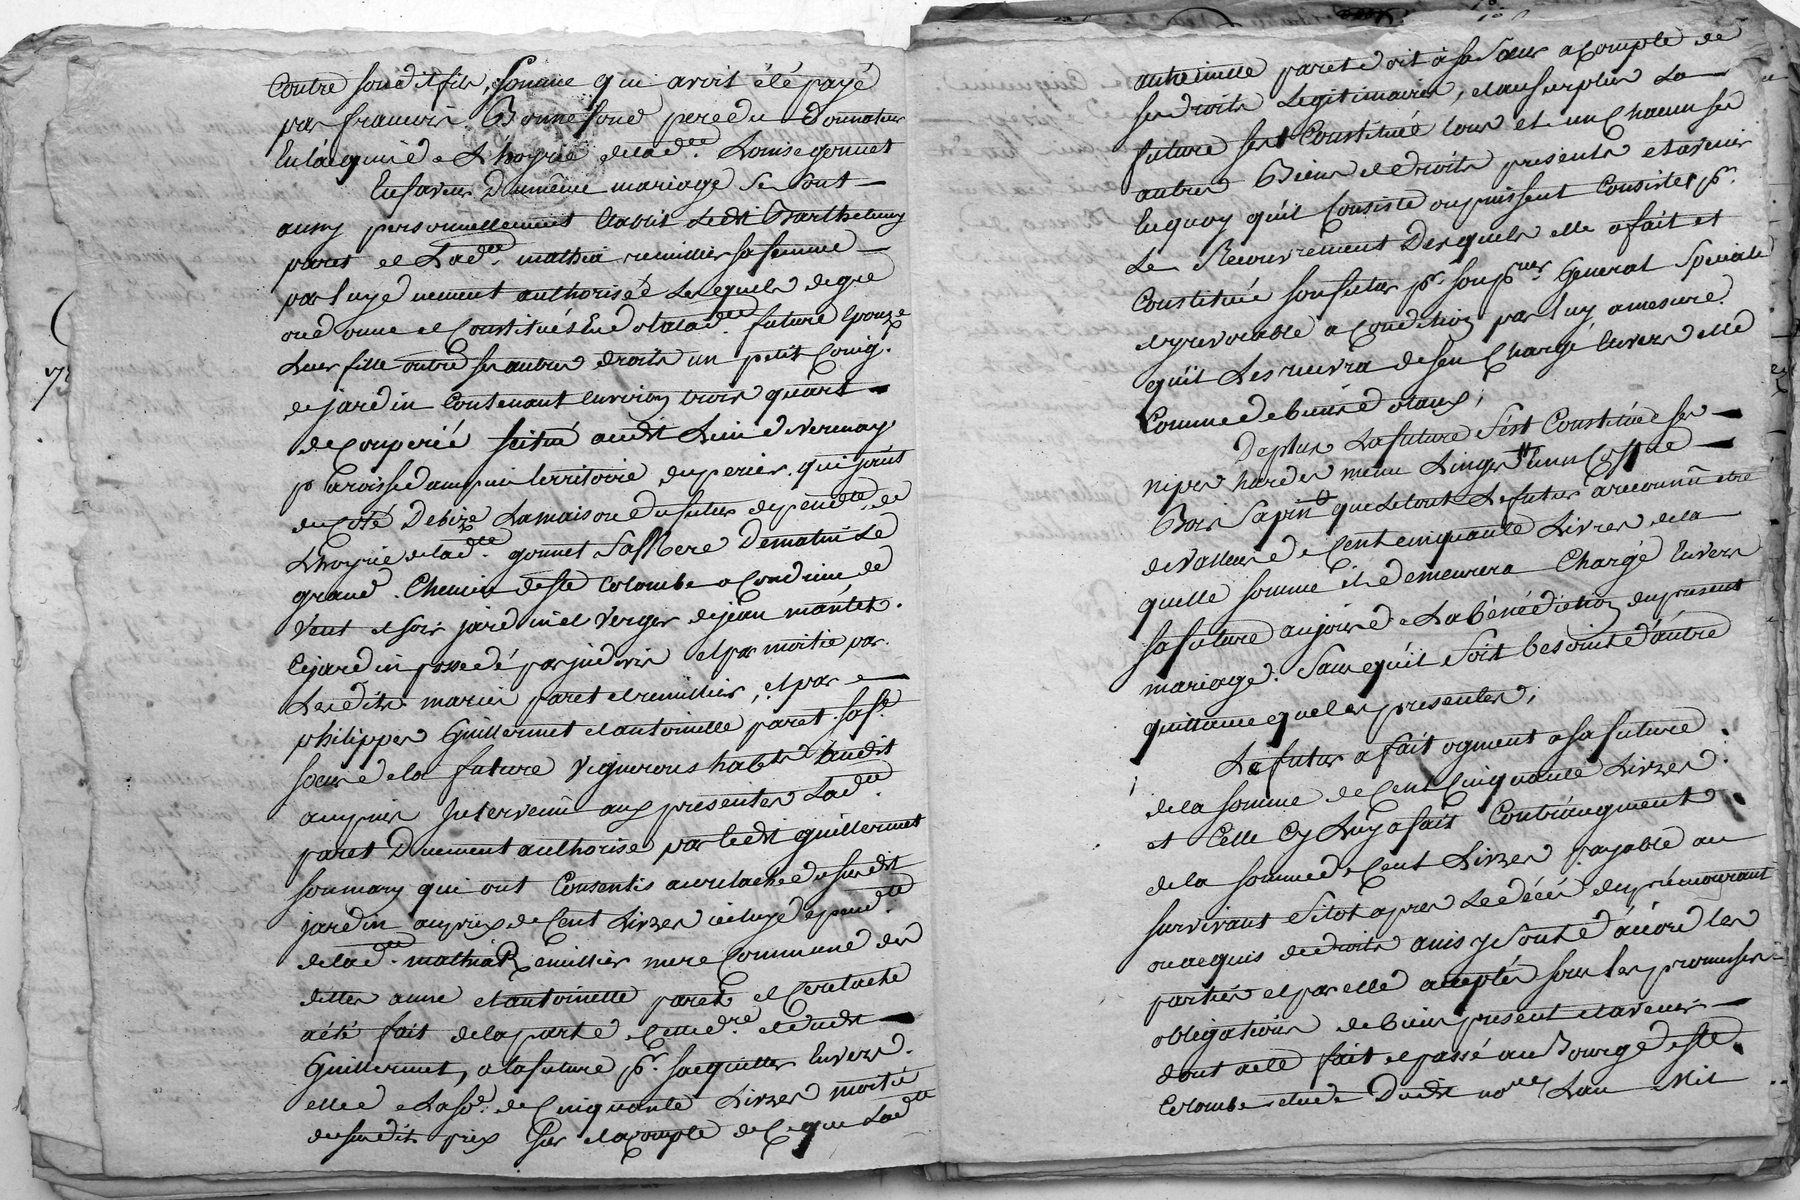 Contre sondit fils, somme qui avoit été payé
par francois Bonnefond pere du donnateur
En lacquis de L'hoyrie de lad.te Louise gonnet
En faveur du même mariage se sont
aussy personnellement Etablis Ledit Barthelemy
paret et Lad.te mathia remillier sa femme
par luy duement authorisée Lesquels de gré
ont donné et Constitués En dot a lad.te future Epouze
Leur fille outre ses autres droits un petit Coing
de jardin Contenant Environ trois quart
de couperée scitué audit Lieu de vernay
parroisse dampuis territoire du perier, qui joint
du Coté De bize La maison du futur dependte de
L'hoyrie de lad.te gonnet De matin Le
grand Chemin de Ste Colombe a Condrieu, de
Vent et soir jardin et Verger de jean mantet
Ce jardin possedé par indivis et par moitié par
Lesdits mariés paret et remillier, et par
philippes Guillermet et antoinette paret sa fe
soeur de la future Vignerons habts audit
ampuis Intervenu aux presentes Lad.te
paret Duement authorisé par ledit guillermet
son mary qui ont Consentis au relaché du susdit
jardin au prix de Cent Livres iceluy depend.te
de lad.te mathia Remillier mere Commune des
dittes anne et antoinette paret et Ce relaché
a été fait de la part de Cette d.re et dudit
Guillermet, a la future pr. s'acquitter Envers
elle de La so.e de Cinquante Livres moitié
du susdit prix sur et a compte de Ce que Lad.te
antoinette paret doit à sa Sœur a Compte de
ses droits Legitimaires, et au surplus La
future s'est Constitué tous et un Chacun ses
autres Biens et droits presents et avenir
En quoy qu'il Consiste ou puissent Consister pr.
Le Recouvrement Desquels elle a fait et
Constitué son futur pr. son pr.eur General Special
et yrevocable a Condition par luy a mesure
qu'il Les recevra de s'en Charger Envers elle
Comme de biens dotaux;
De plus La future s'est Constituée ses
nipes hardes menu Linges et un Coffre
Bois Sapin que le tout Le futur a reconnu etre
de Valleur de Cent cinquante Livres de la
quelle somme il demeurera Chargé Envers
sa future au jour de La bénédiction du present
mariage. Sans qu'il Soit besoin d'autre
quittance que les presentes;
Le futur a fait ogment a sa future
de la somme de Cent Cinquante Livres
et Celle Cy Luy a fait Contr'augment
de la somme de Cent Livres payable au
survivant Sitot apres Le décés du prémourant
ou acquis de droits ainsy Sont d'accord les
parties et par elle acceptés sous les promesses
obligations de biens present et avenir
dont acte fait et passé au Bourg de Ste
Colombe etude Dudit nore Lan Mil